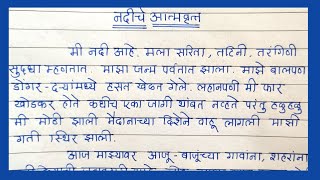 नदीचे आत्मवृत्त
मी नदी आहे. मला सरिता, तटिनी, तरंगिणी
सुद्धा म्हणतात. माझा जन्म पर्वतात झाला. माझे बालपण
डोंगर-दऱ्यांमध्ये हसत खेळत गेले. लहानपणी मी फार
खोडकर होते कधीच एका जागी थांबत नव्हते परंतु हळूहळू
मी मोठी झाली मैदानाच्या दिशेने वाहू लागली माझी
गती स्थिर झाली.
आज माझ्यावर आजू-बाजूच्या गावांना, शहरांना